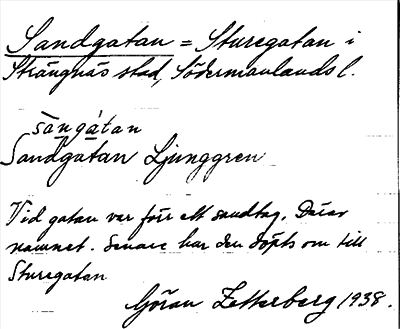 Sandgatan = Sturegatan i
Strängnäs stad, Södermanlands l.
sàngátan
Sandgatan Ljunggren
Vid gatan var förr ett sandtag. Därav
namnet. Senare har den döpts om till
Sturegatan
Göran Zetterberg 1938.